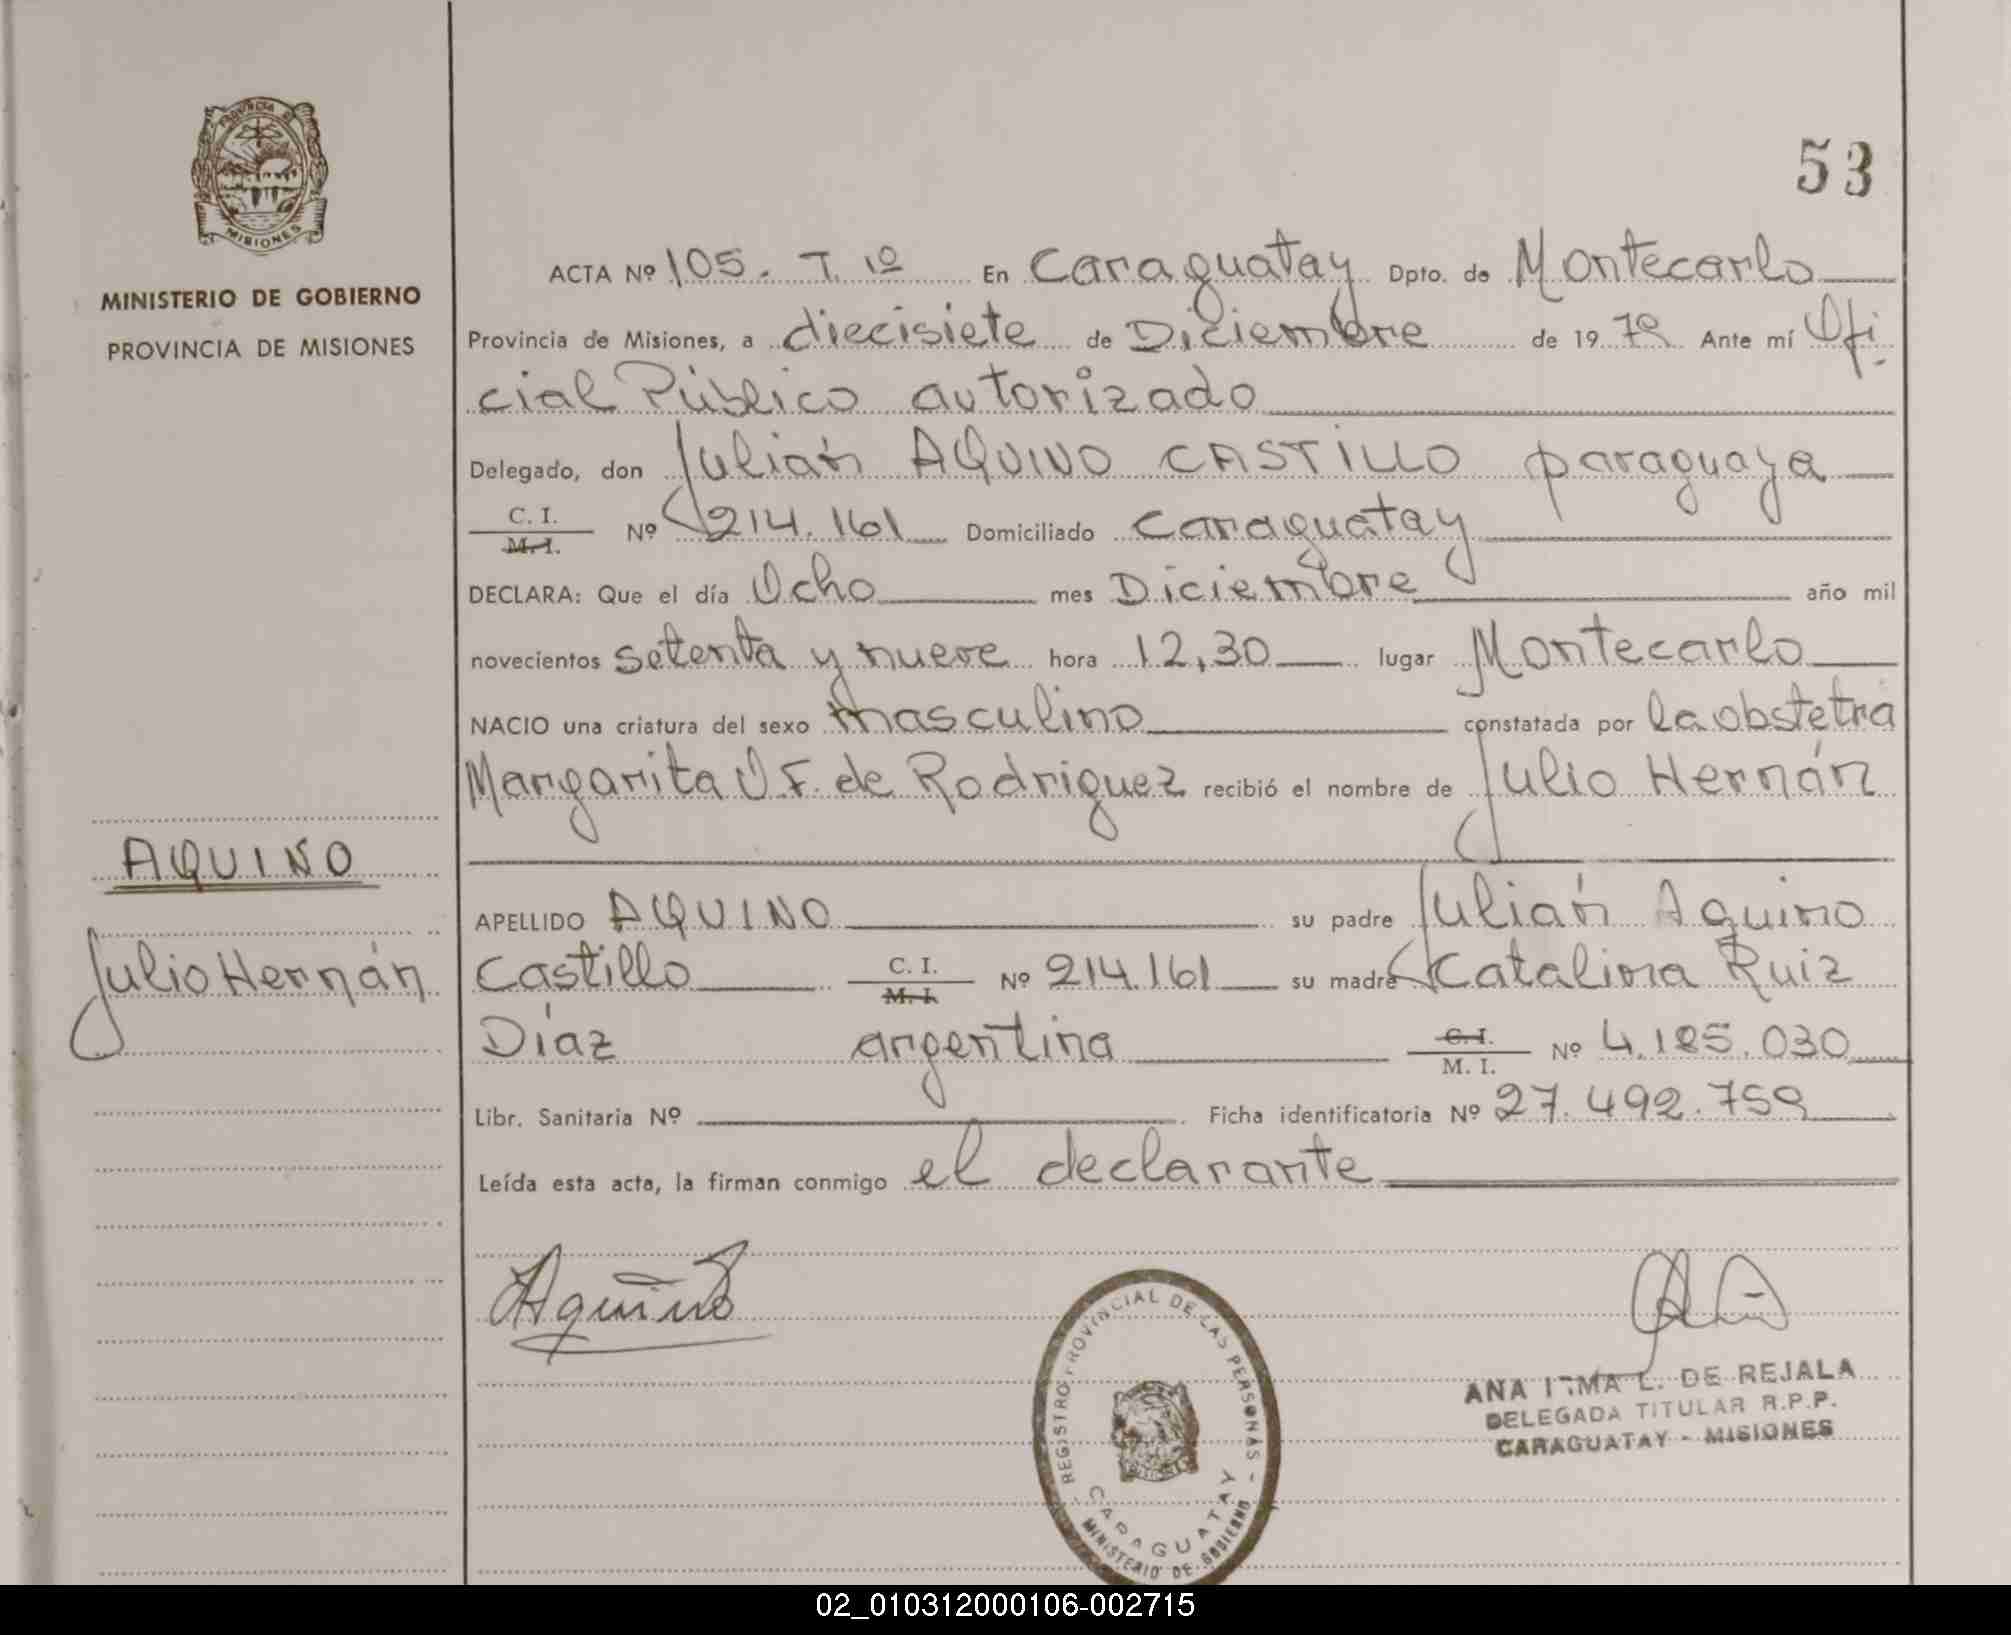 PROVINCIA DE
MISIONES
MINISTERIO DE GOBIERNO
PROVINCIA DE MISIONES
53
ACTA Nº 105. T. 1º En Caraguatay Dpto. de Montecarlo
Provincia de Misiones, a diecisiete de Diciembre de 1979 Ante mí Ofi
cial Público autorizado
Delegado, don Julián AQUINO CASTILLO paraguaya
C. I.
M. I. Nº 214.161 Domiciliado Caraguatay
DECLARA: Que el día Ocho mes Diciembre año mil
novecientos setenta y nueve hora 12,30 lugar Montecarlo
NACIO una criatura del sexo masculino constatada por la obstetra
Margarita O F. de Rodriguez recibió el nombre de Julio Hernán
AQUINO
APELLIDO AQUINO su padre Julián Aquino
Julio Hernán
Castillo C. I.
M. I. Nº 214.161 su madre Catalina Ruiz
Díaz argentina C. I.
M. I. Nº 4.185.030
Libr. Sanitaria Nº Ficha identificatoria Nº 27.492.759
Leída esta acta, la firman conmigo el declarante
Aquino
REGISTRO PROVINCIAL DE LAS PERSONAS
CARAGUATAY
MINISTERIO DE GOBIERNO
ANA IRMA L. DE REJALA
DELEGADA TITULAR R.P.P.
CARAGUATAY - MISIONES
02_010312000106-002715